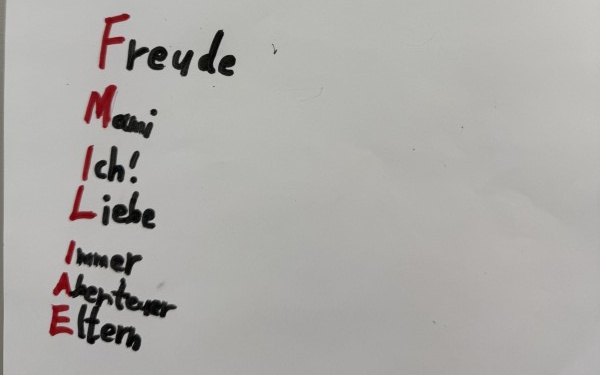 Freude
Mami
Ich!
Liebe
Immer
Abenteuer
Eltern